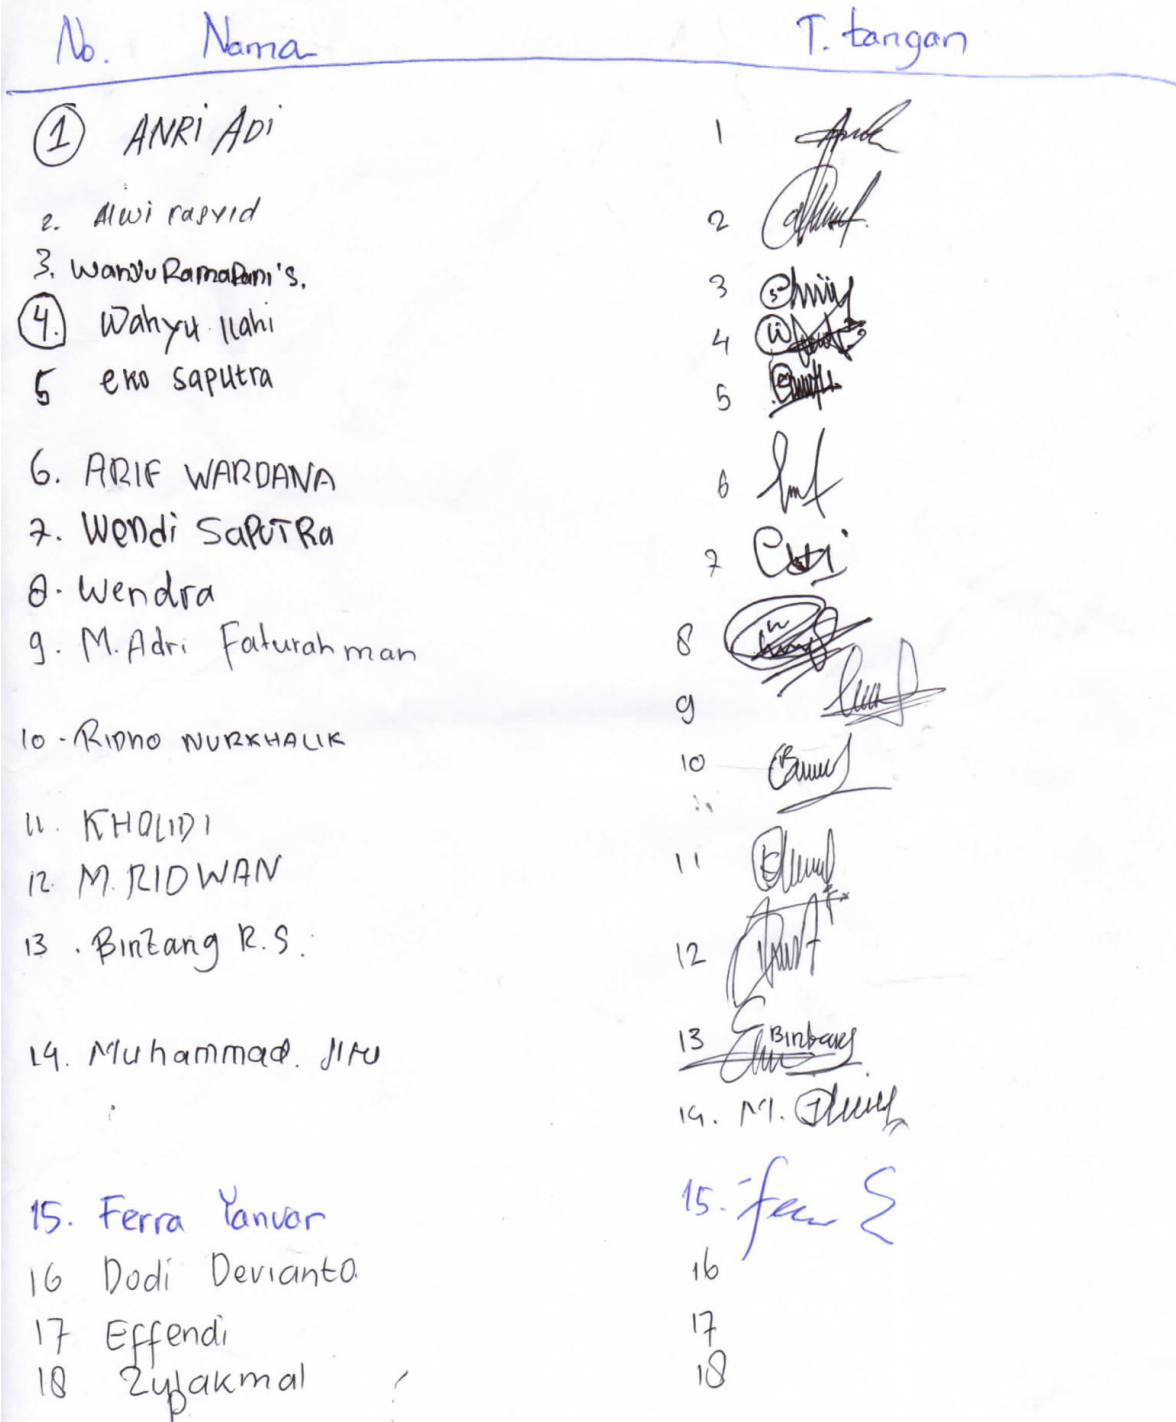 No. Nama T. tangan
1 ANRi ADi 1
2. Alwi rasyid 2
3. Wahyu Ramadani's. 3
4. Wahyu Ilahi 4
5 eko saputra 5
6. ARIF WARDANA 6
7. Wendi SaPUTRa 7
8. Wendra
9. M. Adri Faturahman 8
9
10. RIDHO NURKHALIK 10
11. KHOLIDI 11
12. M. RIDWAN
13. Bintang R.S. 12
14. Muhammad. 13 Bintang
14. M.
15. Ferra Yanuar 15.
16 Dodi Devianto 16
17 Effendi 17
18 Zulakmal 18